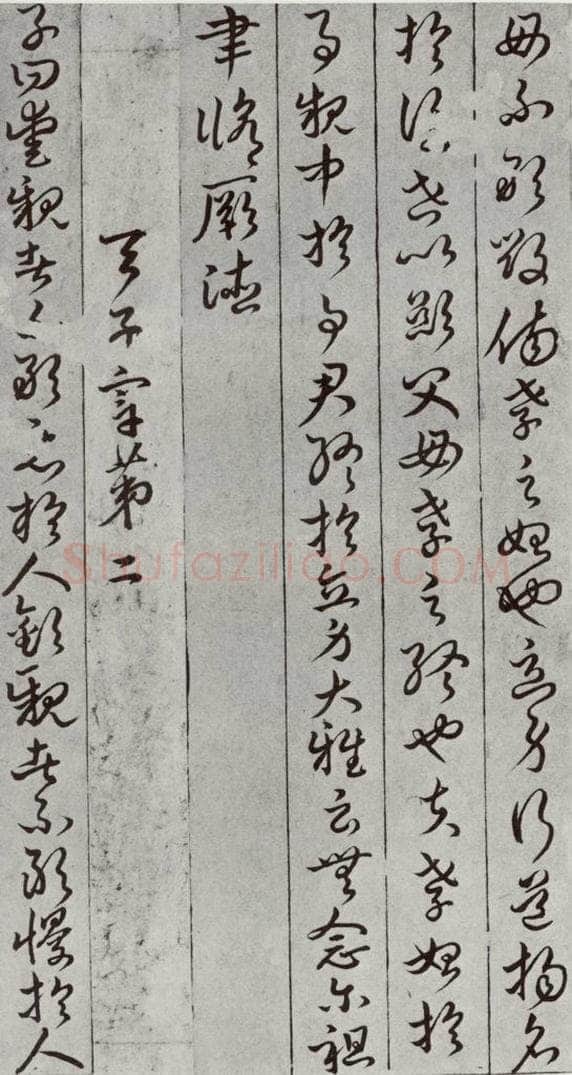 母不敢毀傷孝之始也立身行道揚名
於後世以顯父母孝之終也夫孝始於
事親中於事君終於立身大雅云無念尔祖
聿脩厥德
天子章第二
子曰愛親者不敢惡於人敬親者不敢慢於人
Shufaziliao.COM